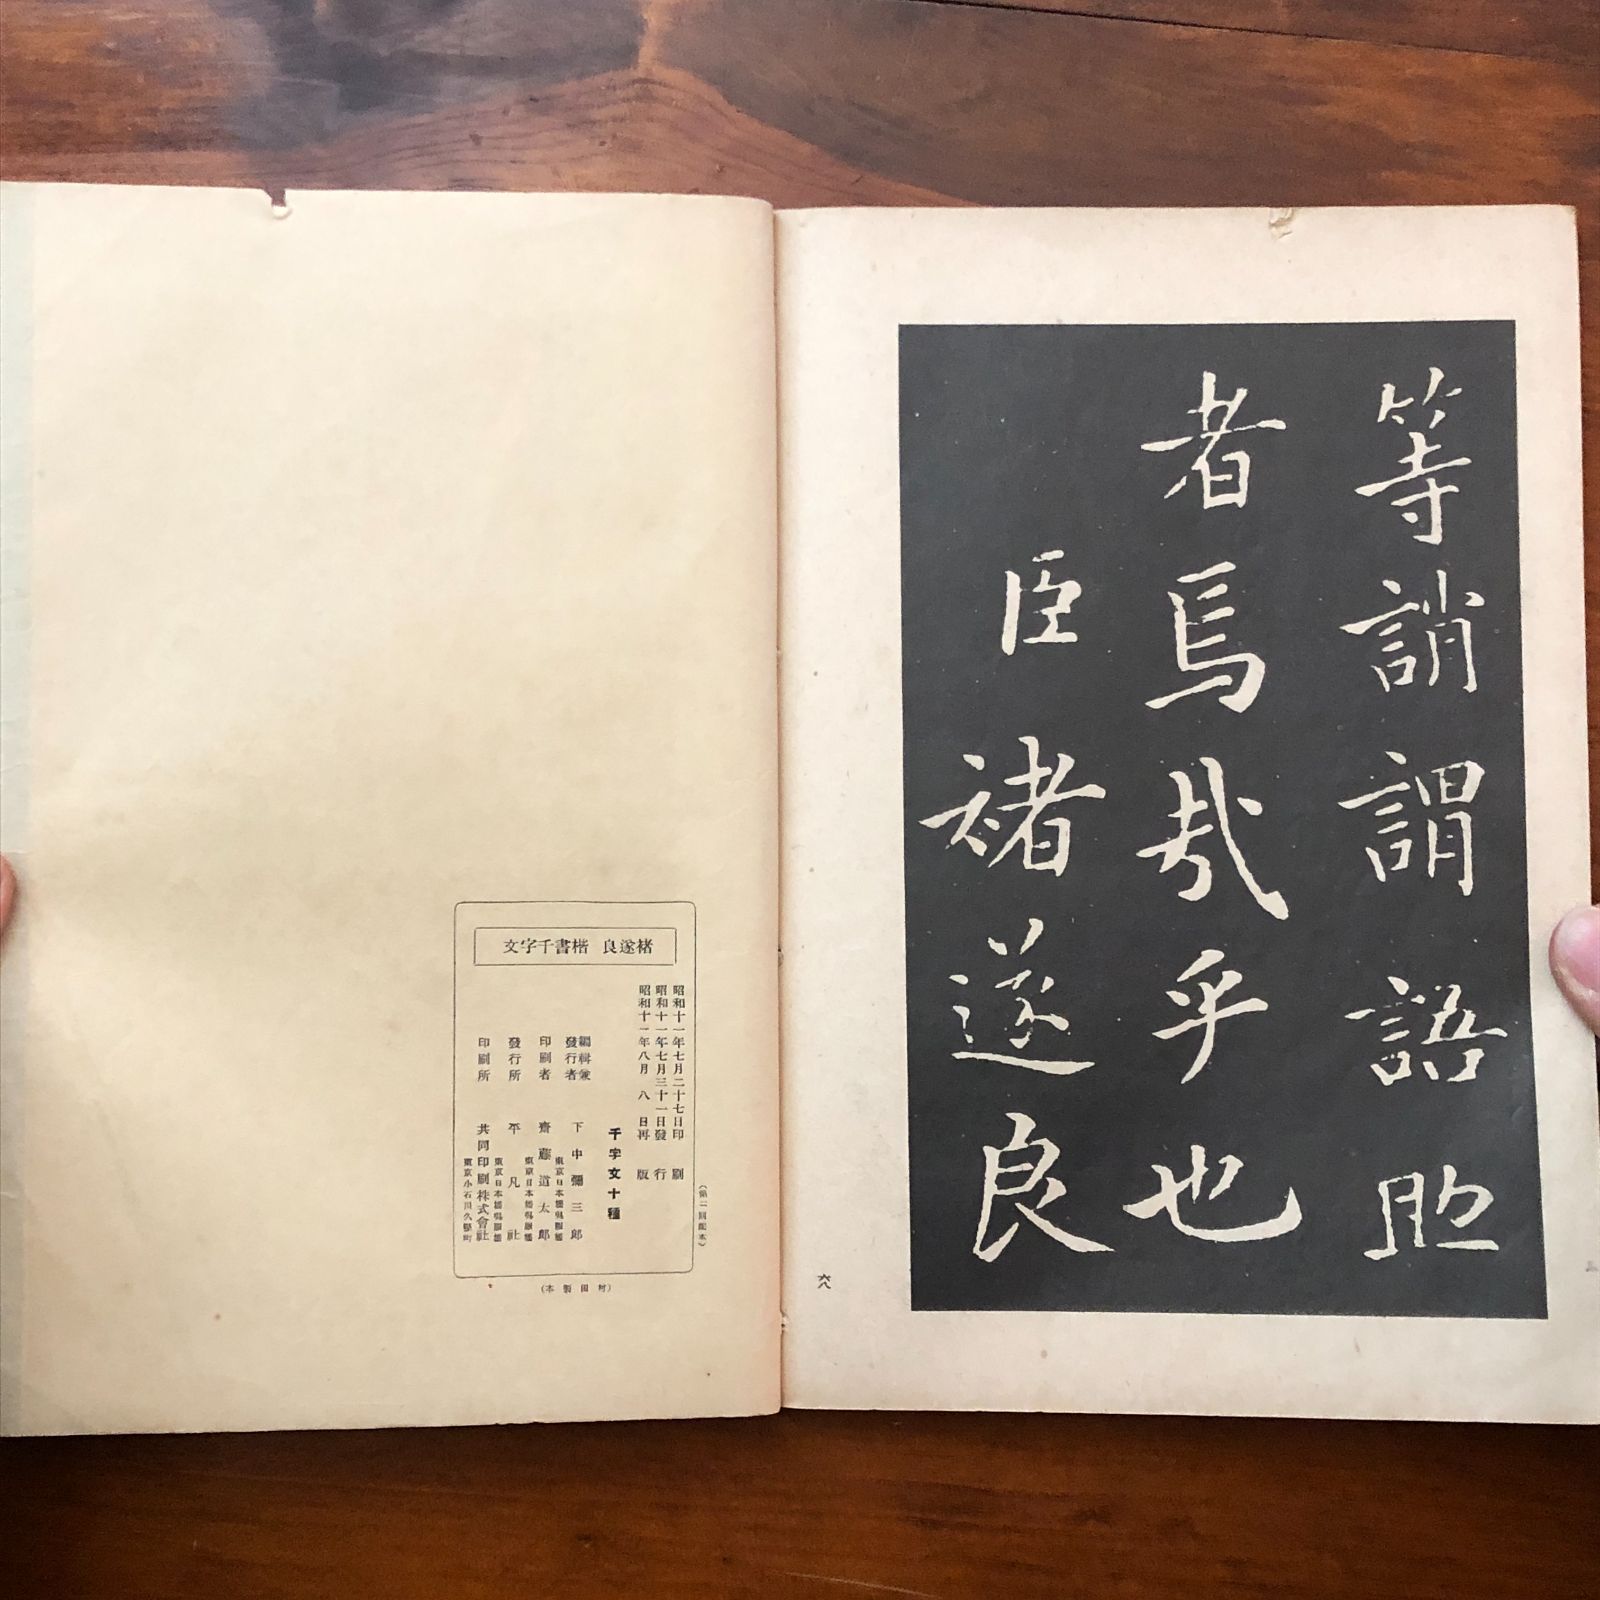 等誚謂語助
者焉哉乎也
臣褚遂良
六八
褚遂良 楷書千字文
昭和十一年七月二十七日印刷
昭和十一年七月三十一日發行
昭和十一年八月八日再版
(第二回配本)
千字文十種
編輯兼發行者 下中彌三郎
印刷者 齋藤道太郎
發行所 平凡社
印刷所 共同印刷株式會社
東京小石川久堅町
(村田製本)